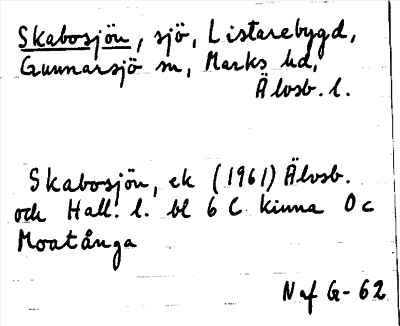 Skabosjön, sjö, Listarebygd,
Gunnarsjö sn, Marks hd,
Älvsb. l.
Skabosjön, ek (1961) Älvsb.
och Hall. l. bl 6 C Kinna 0 c
Moatånga
Naf G-62